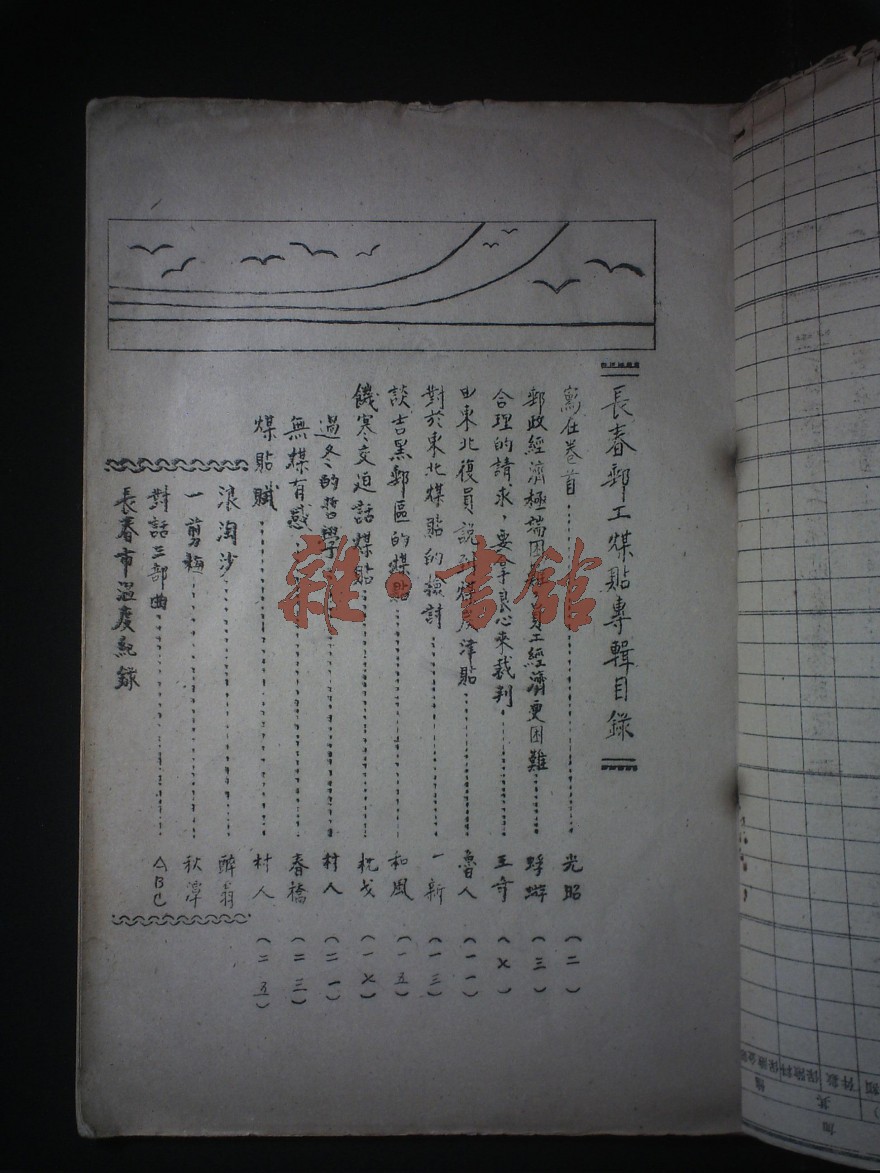 長春郵工煤貼專輯目錄
寫在卷首 光昭 (二)
郵政經濟極端困難員工經濟更困難 蜉蝣 (三)
合理的請求，要用良心來裁判 王奇 (七)
由東北復員說到煤炭津貼 魯人 (一一)
對於東北煤貼的檢討 一新 (一三)
談吉黑郵區的煤貼 和風 (一五)
饑寒交迫話煤貼 枕戈 (一七)
過冬的哲學 村人 (二一)
無煤有感 春橋 (二三)
煤貼賦 村人 (二五)
浪淘沙 醉翁
一剪梅 秋潭
對話三部曲 ABC
長春市温度紀錄
雜·書館